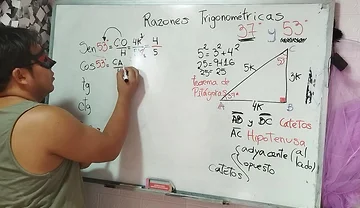 Razones Trigonométricas
37° y 53°
Sen 53° = CO/H = 4K/5K = 4/5
Cos 53° = CA
tg
ctg
5² = 3² + 4²
25 = 9 + 16
25 = 25
teorema de
Pitágoras
53°
5K
3K
37°
4K
A
B
AB y BC Catetos
AC Hipotenusa
Catetos { adyacente (al lado)
opuesto